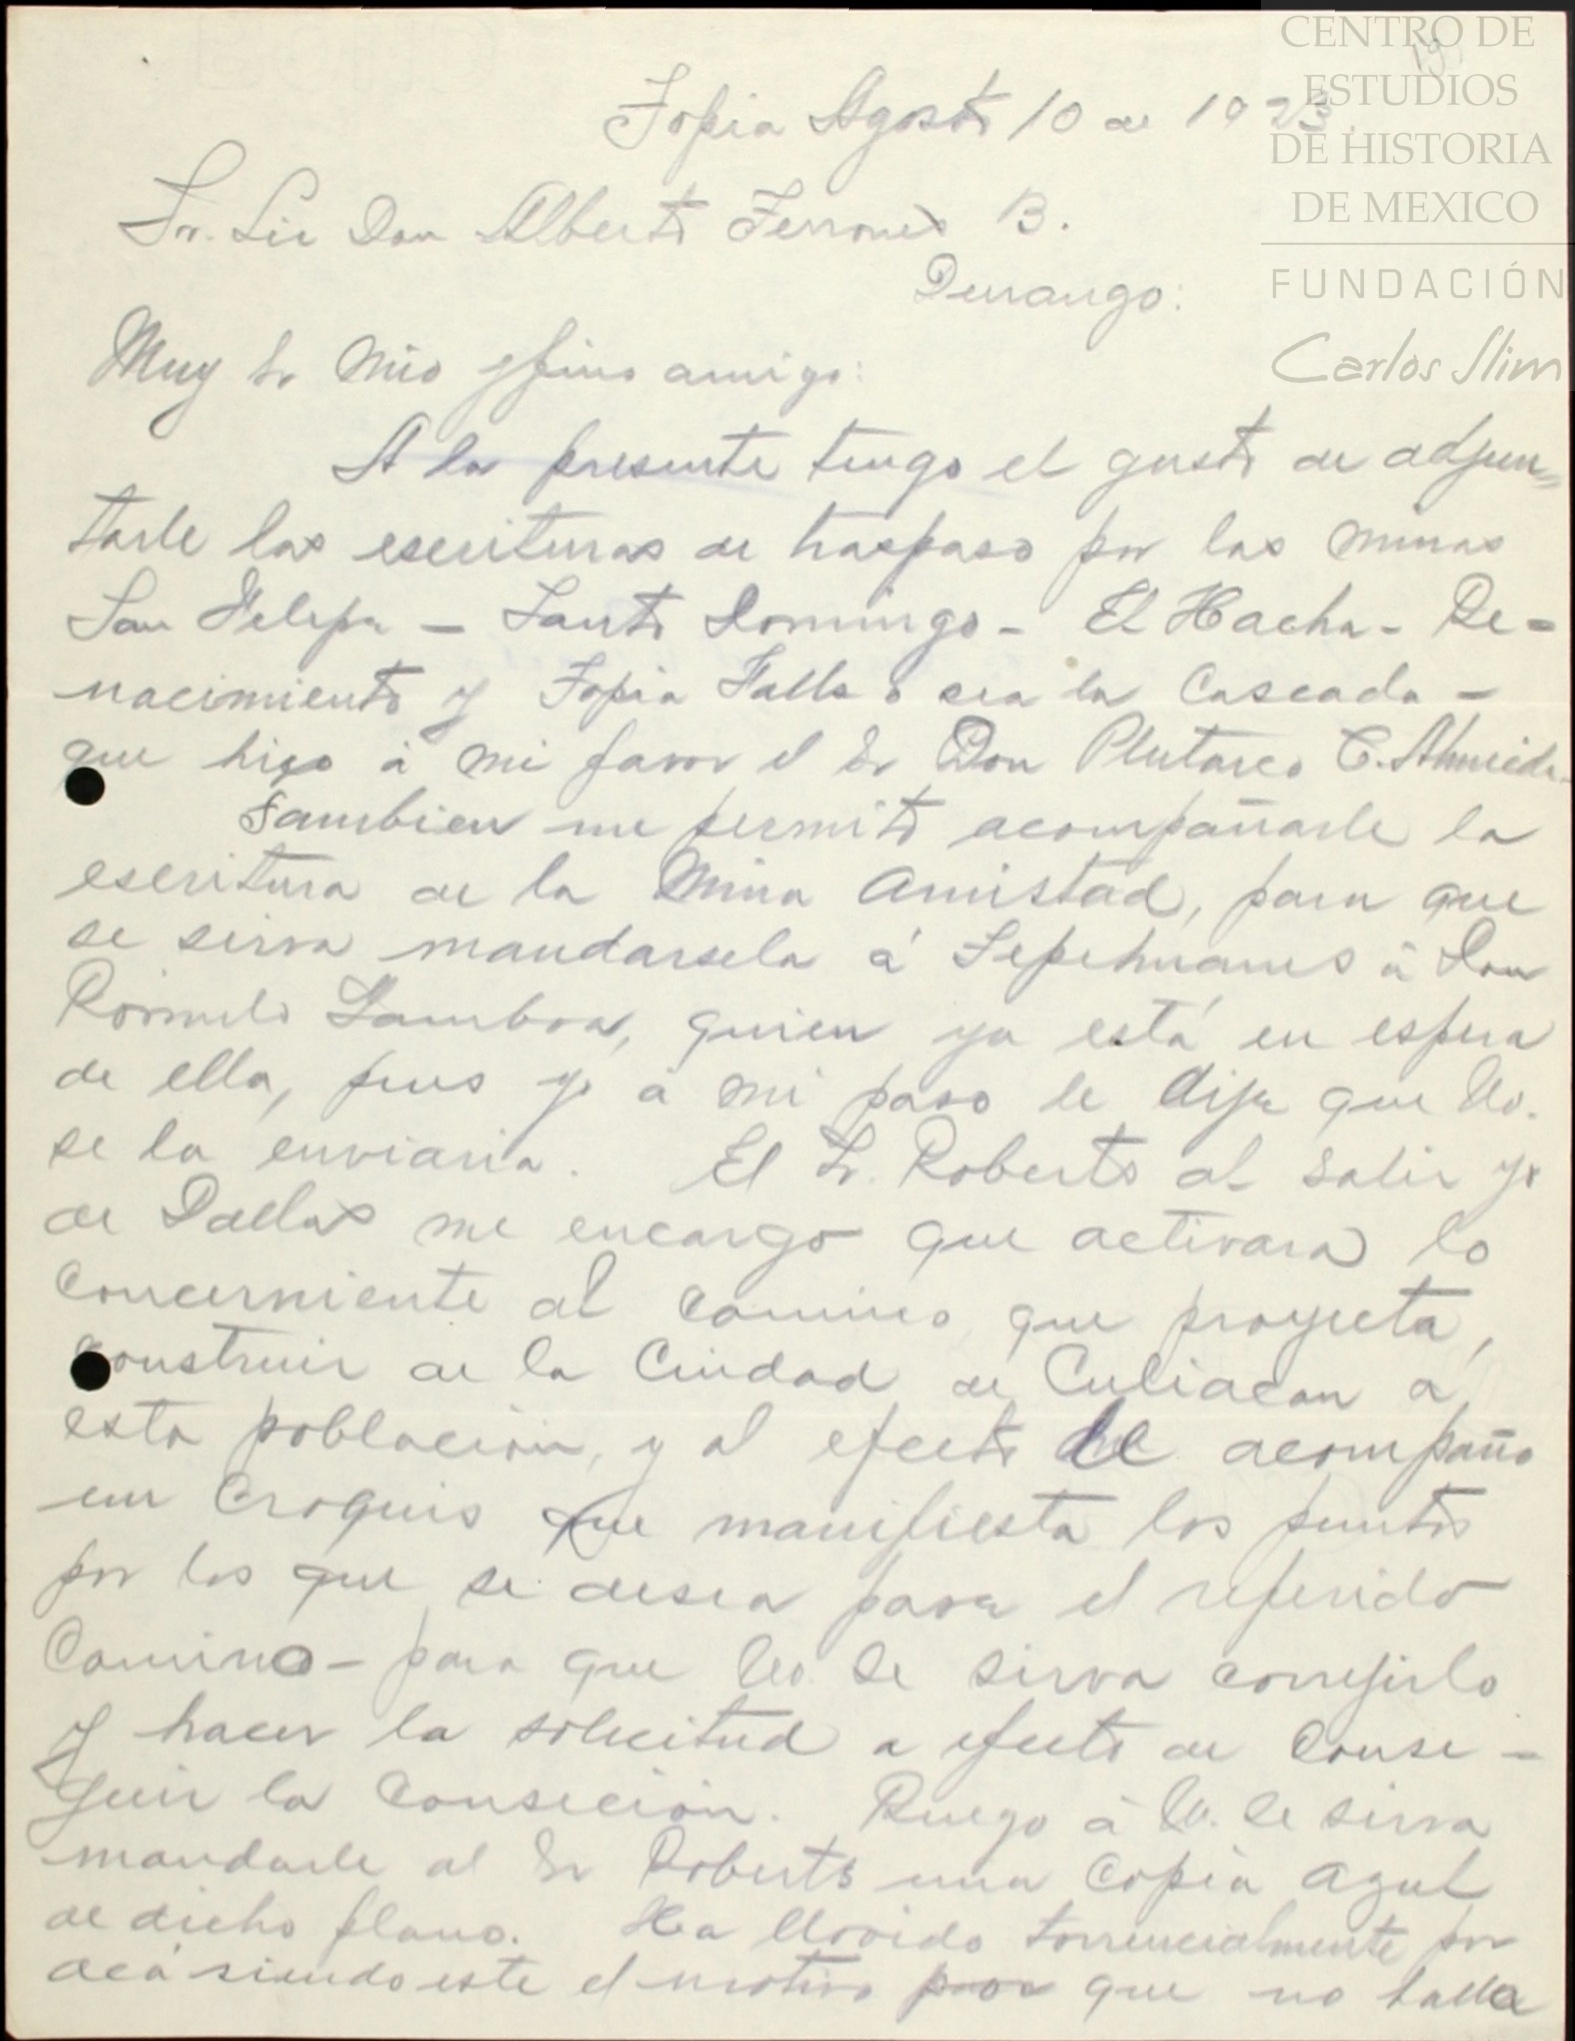 CENTRO DE
ESTUDIOS
DE HISTORIA
DE MEXICO
FUNDACIÓN
Carlos Slim
Topia Agosto 10 de 1923.
Sr. Lic Don Alberto Terrones B.
Durango:
Muy Sr Mio y fino amigo:
A la presente tengo el gusto de adjun=
tarle las escrituras de traspaso por las minas
San Felipe – Santo Domingo – El Hacha – Re=
nacimiento y Topia Falls o sea la Cascada –
que hizo á mi favor el Sr Don Plutarco C. Almeida.
Tambien me permito acompañarle la
escritura de la Mina Amistad, para que
se sirva mandarsela á Tepehuanes á Don
Romulo Gamboa, quien ya está en espera
de ella, pues yo á mi paso le dije que Ud.
se la enviaria. El Sr. Roberts al salir yo
de Dallas me encargo que activara lo
concerniente al camino que proyecta,
construir de la Ciudad de Culiacan a
esta poblacion, y al efecto le acompaño
un Croquis que manifiesta los puntos
por los que se desea pase el referido
Camino – para que Ud. se sirva correjirlo
y hacer la solicitud a efecto de Conse –
guir la Consecion. Ruego á Ud. se sirva
mandarle al Sr Roberts una Copia azul
de dicho plano. Ha llovido torrencialmente por
acá siendo este el motivo por que no halla